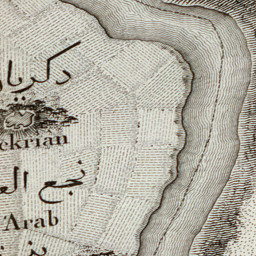 دكريا
ckrian
نجع الع
'Arab